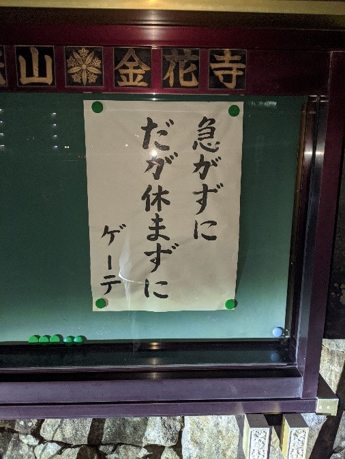 山 金花寺
急がずに
だが休まずに
ゲーテ